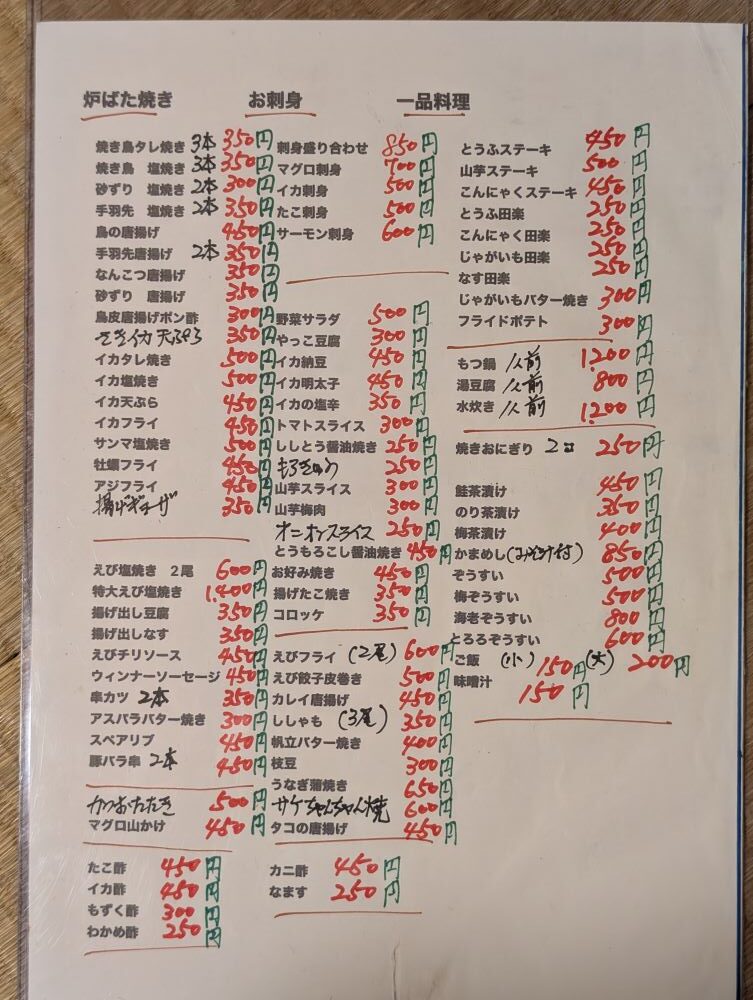 炉ばた焼き
焼き鳥タレ焼き 3本 350円
焼き鳥 塩焼き 3本 350円
砂ずり 塩焼き 2本 300円
手羽先 塩焼き 2本 350円
鳥の唐揚げ 450円
手羽先唐揚げ 2本 350円
なんこつ唐揚げ 350円
砂ずり 唐揚げ 350円
鳥皮唐揚げポン酢 300円
さきイカ天ぷら 350円
イカタレ焼き 500円
イカ塩焼き 500円
イカ天ぷら 450円
イカフライ 450円
サンマ塩焼き 500円
牡蠣フライ 450円
アジフライ 450円
揚げギョーザ 350円
えび塩焼き 2尾 600円
特大えび塩焼き 1,400円
揚げ出し豆腐 350円
揚げ出しなす 350円
えびチリソース 450円
ウィンナーソーセージ 450円
串カツ 2本 350円
アスパラバター焼き 300円
スペアリブ 450円
豚バラ串 2本 450円
かつおたたき 500円
マグロ山かけ 450円
たこ酢 450円
イカ酢 450円
もずく酢 300円
わかめ酢 250円
お刺身
刺身盛り合わせ 850円
マグロ刺身 700円
イカ刺身 500円
たこ刺身 500円
サーモン刺身 600円
野菜サラダ 500円
やっこ豆腐 300円
イカ納豆 450円
イカ明太子 450円
イカの塩辛 350円
トマトスライス 300円
ししとう醤油焼き 250円
もろきゅう 250円
山芋スライス 300円
山芋梅肉 300円
オニオンスライス 250円
とうもろこし醤油焼き 450円
お好み焼き 450円
揚げたこ焼き 350円
コロッケ 350円
えびフライ (2尾) 600円
えび餃子皮巻き 500円
カレイ唐揚げ 450円
ししゃも (3尾) 350円
帆立バター焼き 400円
枝豆 300円
うなぎ蒲焼き 650円
サケちゃんちゃん焼 600円
タコの唐揚げ 450円
カニ酢 450円
なます 250円
一品料理
とうふステーキ 450円
山芋ステーキ 500円
こんにゃくステーキ 450円
とうふ田楽 250円
こんにゃく田楽 250円
じゃがいも田楽 250円
なす田楽 250円
じゃがいもバター焼き 300円
フライドポテト 300円
もつ鍋 1人前 1,200円
湯豆腐 1人前 800円
水炊き 1人前 1,200円
焼きおにぎり 2コ 250円
鮭茶漬け 450円
のり茶漬け 350円
梅茶漬け 400円
かまめし(みそ汁付) 850円
ぞうすい 500円
梅ぞうすい 500円
海老ぞうすい 800円
とろろぞうすい 600円
ご飯 (小) 150円 (大) 200円
味噌汁 150円